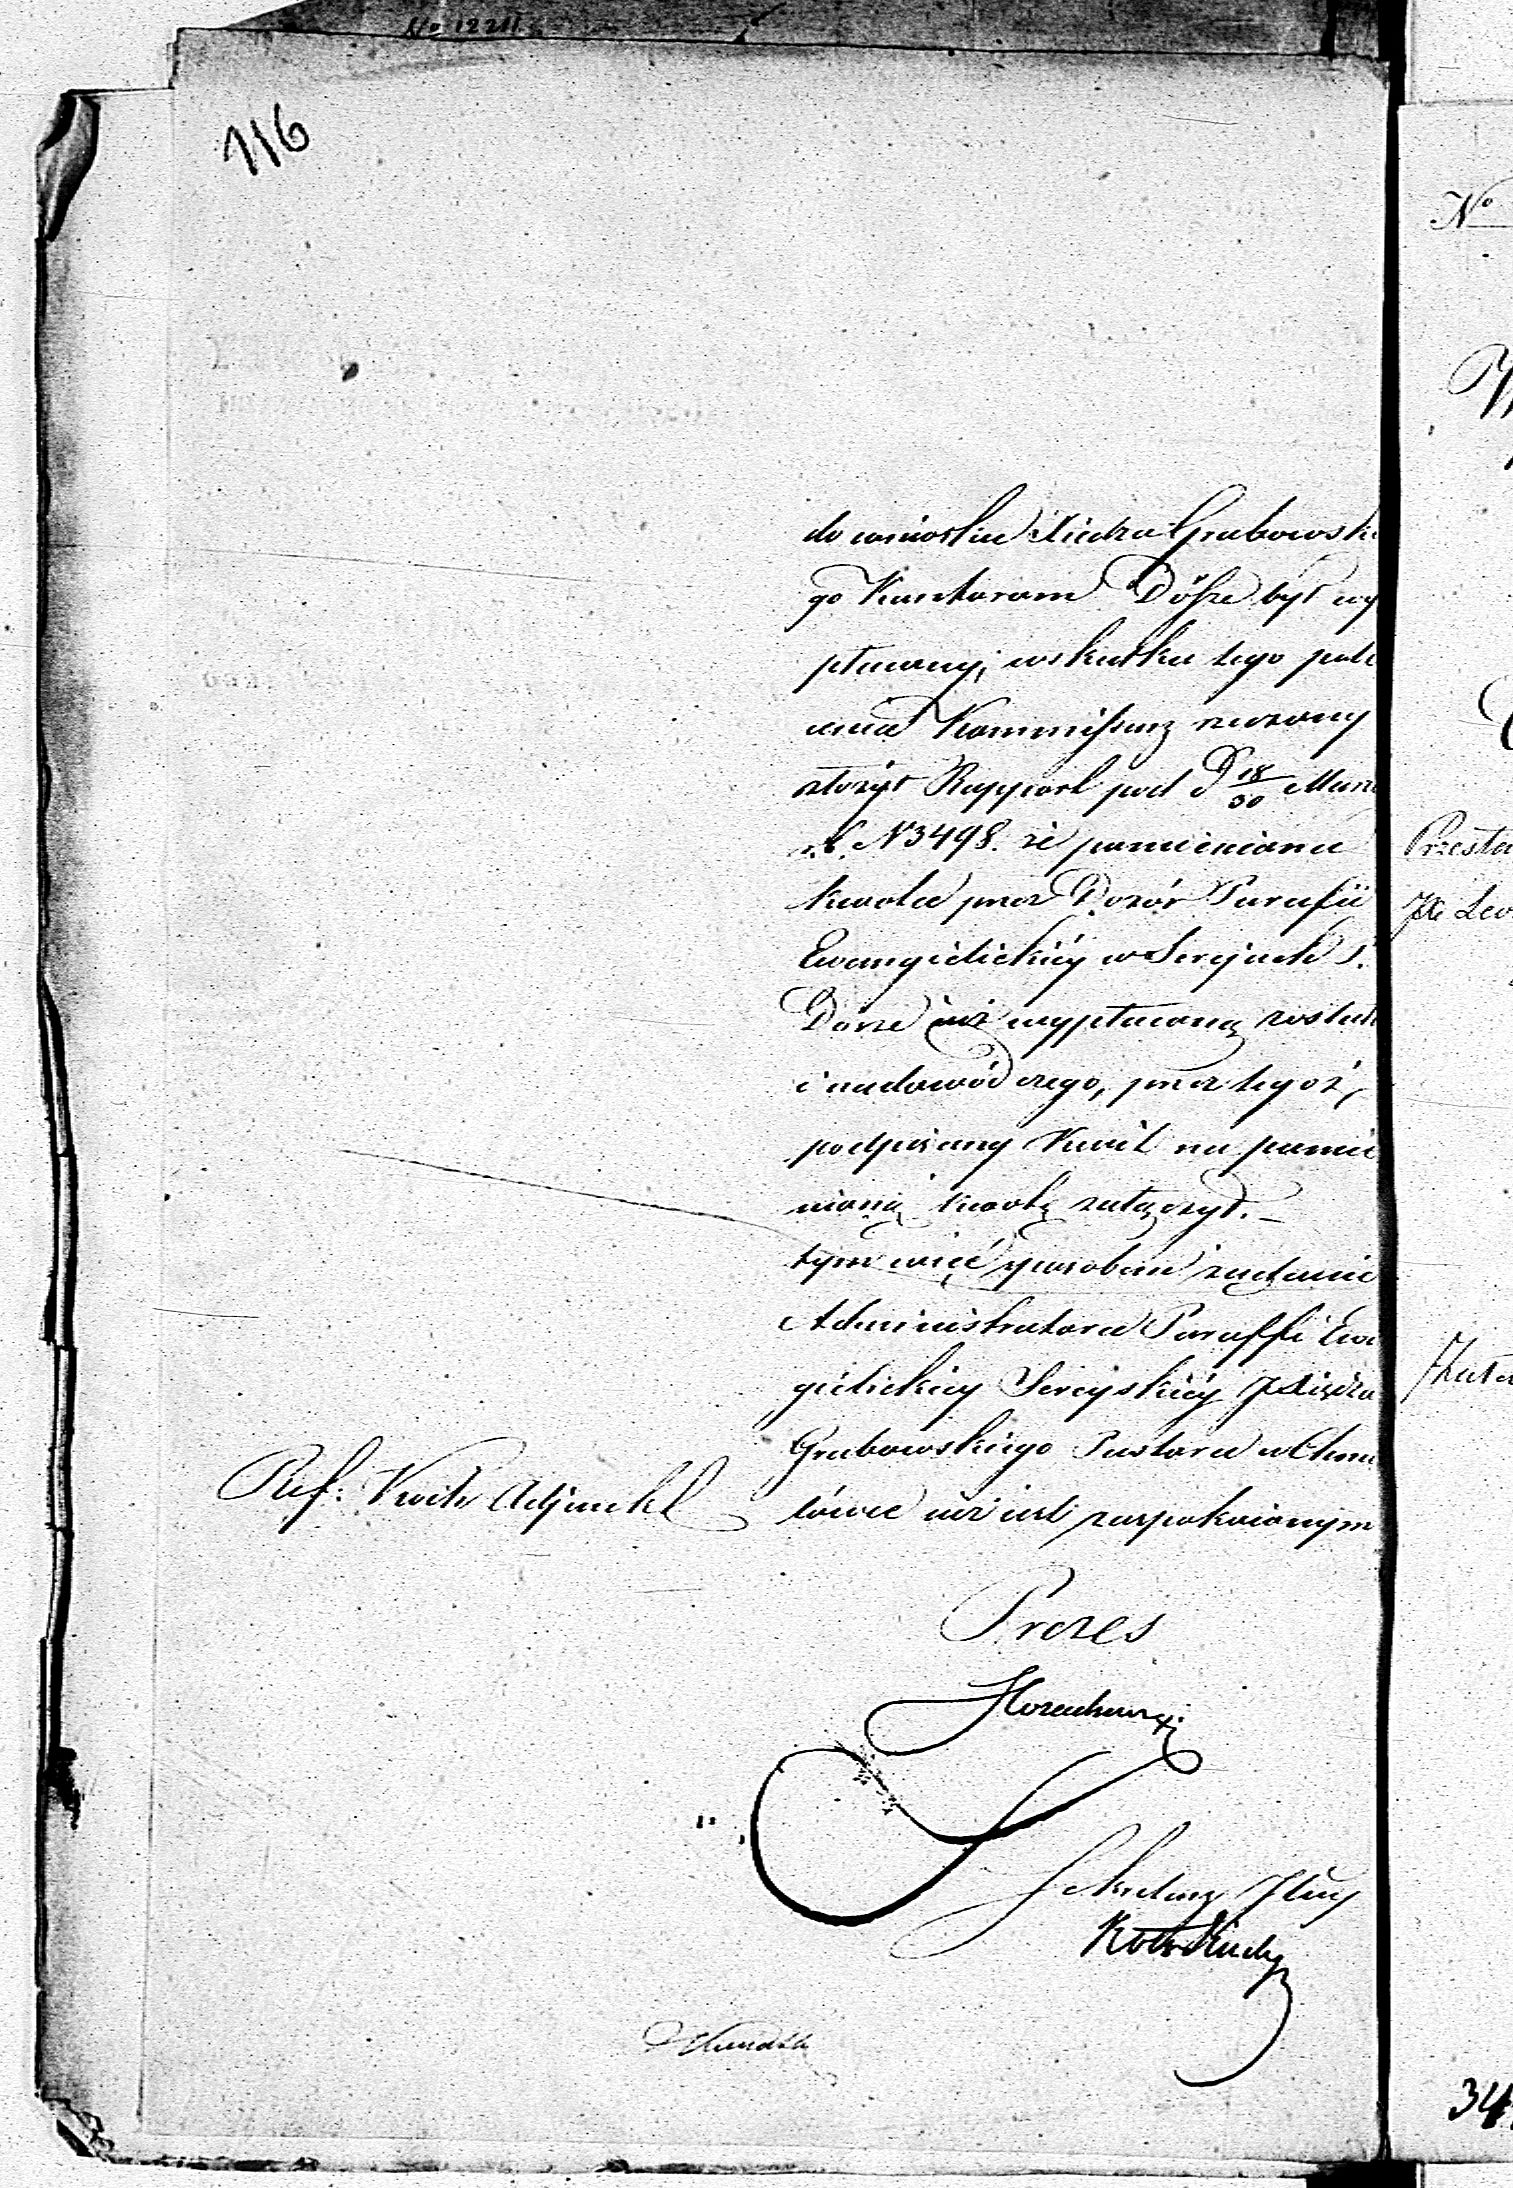 No 12211
116
do wniosku Xiedza Grabowski
go Kantorom Döhze był wy
płacony; wskutku tego pole
cenia Kommissarz rzeczony
złożył Rapport pod d 18/30 Marc
r.b. N 3498. że pomieniona
kwota przez Dozór Parafii
Ewangielickiéy w Serejach
Dorze iuż wypłaconą został
i na dowód czego, przez tegoż,
podpisany Kwit na pomie
nioną kwotę załączył. –
tym więc sposobem żądanie
Administratora Paraffii Ewa
gielickiey Sereyskiéy JXiędza
Grabowskiego Pastora w
łówce iuż iest zaspokoionym
Ref: Adjunkt
Prezes
Sekretarz Jlny
No
Przesta
34